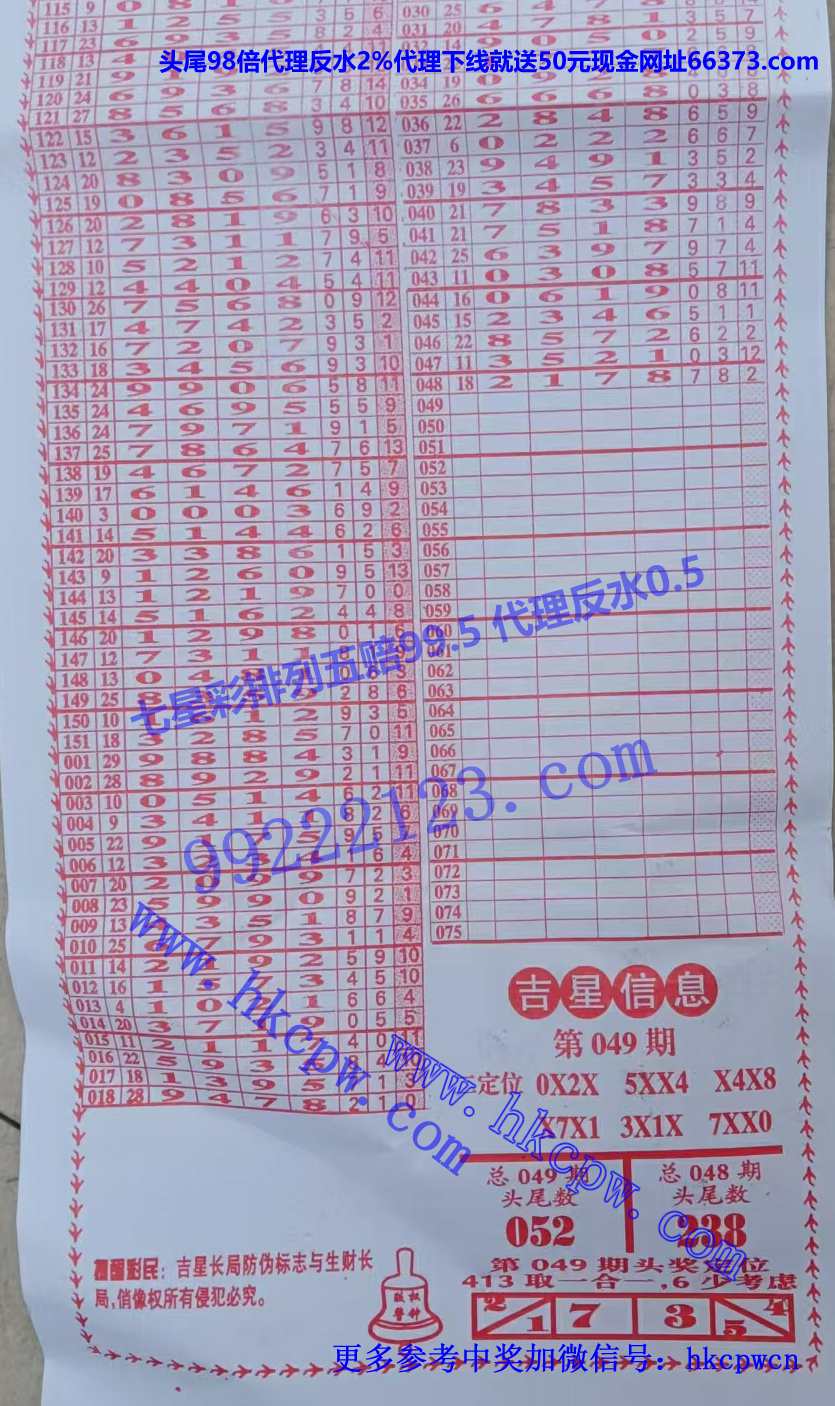 头尾98倍代理反水2%代理下线就送50元现金网址66373.com
115 9 0 8 1 5 3 5 6
116 13 1 2 5 5
117 23 6 9 3 5
118 13
119 21
120 24 6 9 3 6 7 8 14
121 27 8 5 6 8 3 4 10
122 15 3 6 1 5 9 8 12
123 12 2 3 5 2 3 4 11
124 20 8 3 0 9 5 1 8
125 19 0 8 5 6 7 1 9
126 20 2 8 1 9 6 3 10
127 12 7 3 1 1 7 9 5
128 10 5 2 1 2 7 4 11
129 12 4 4 0 4 5 4 11
130 26 7 5 6 8 0 9 12
131 17 4 7 4 2 3 5 2
132 16 7 2 0 7 9 3 1
133 18 3 4 5 6 9 3 10
134 24 9 9 0 6 5 8 11
135 24 4 6 9 5 5 5 9
136 24 7 9 7 1 9 1 5
137 25 7 8 6 4 7 6 13
138 19 4 6 7 2 7 5 7
139 17 6 1 4 6 1 4 9
140 3 0 0 0 3 6 9 2
141 14 5 1 4 4 6 2 6
142 20 3 3 8 6 1 5 3
143 9 1 2 6 0 9 5 13
144 13 1 2 1 9 7 0 0
145 14 5 1 6 2 4 4 8
146 20 1 2 9 8 0 1 6
147 12 7 3 1 1
148 13 0 4
149 25 8 2 8 6
150 10 1 2 9 3 5
151 18 3 2 8 5 7 0 11
001 29 9 8 8 4 3 1 9
002 28 8 9 2 9 2 1 11
003 10 0 5 1 4 6 2 11
004 9 3 4 1 1 8 2 6
005 22 9 5 9 5
006 12 3 2 1 6 4
007 20 2 0 9 9 7 2 3
008 23 5 9 9 0 9 2 1
009 13 3 5 1 8 7 9
010 25 6 7 9 3 1 1 4
011 14 2 1 9 2 5 9 10
012 16 1 5 7 3 4 5 10
013 4 1 0 1 6 6 4
014 20 3 7 9 0 5 5
015 11 2 1 1 4 0 11
016 22 5 9 3
017 18 1 3 9 5 1 3
018 28 9 4 7 8 2 1 0
030 25 6 4 7 8
031 20 4 7 8 1 3 5 7
9 0 5 0 2 5 9
034 19 0 9 2
035 26 6 6 6 8 0 3 8
036 22 2 8 4 8 6 5 9
037 6 0 2 2 2 6 6 7
038 23 9 4 9 1 3 5 2
039 19 3 4 5 7 3 3 4
040 21 7 8 3 3 9 8 9
041 21 7 5 1 8 7 1 4
042 25 6 3 9 7 9 7 4
043 11 0 3 0 8 5 7 11
044 16 0 6 1 9 0 8 11
045 15 2 3 4 6 5 1 1
046 22 8 5 7 2 6 2 2
047 11 3 5 2 1 0 3 12
048 18 2 1 7 8 7 8 2
049
050
051
052
053
054
055
056
057
058
059
060
061
062
063
064
065
066
067
068
069
070
071
072
073
074
075
七星彩排列五赔99.5 代理反水0.5
99222123.com
www.hkcpw.com
www.hkcpw.com
吉星信息
第 049 期
定位 0X2X 5XX4 X4X8
X7X1 3X1X 7XX0
总 049 期
头尾数
052
总 048 期
头尾数
238
第 049 期头奖定位
413取一合一,6少考虑
2 1 7 3 5 4
彩民：吉星长局防伪标志与生财长
局,俏像权所有侵犯必究。
版权
警钟
更多参考中奖加微信号：hkcpwcn